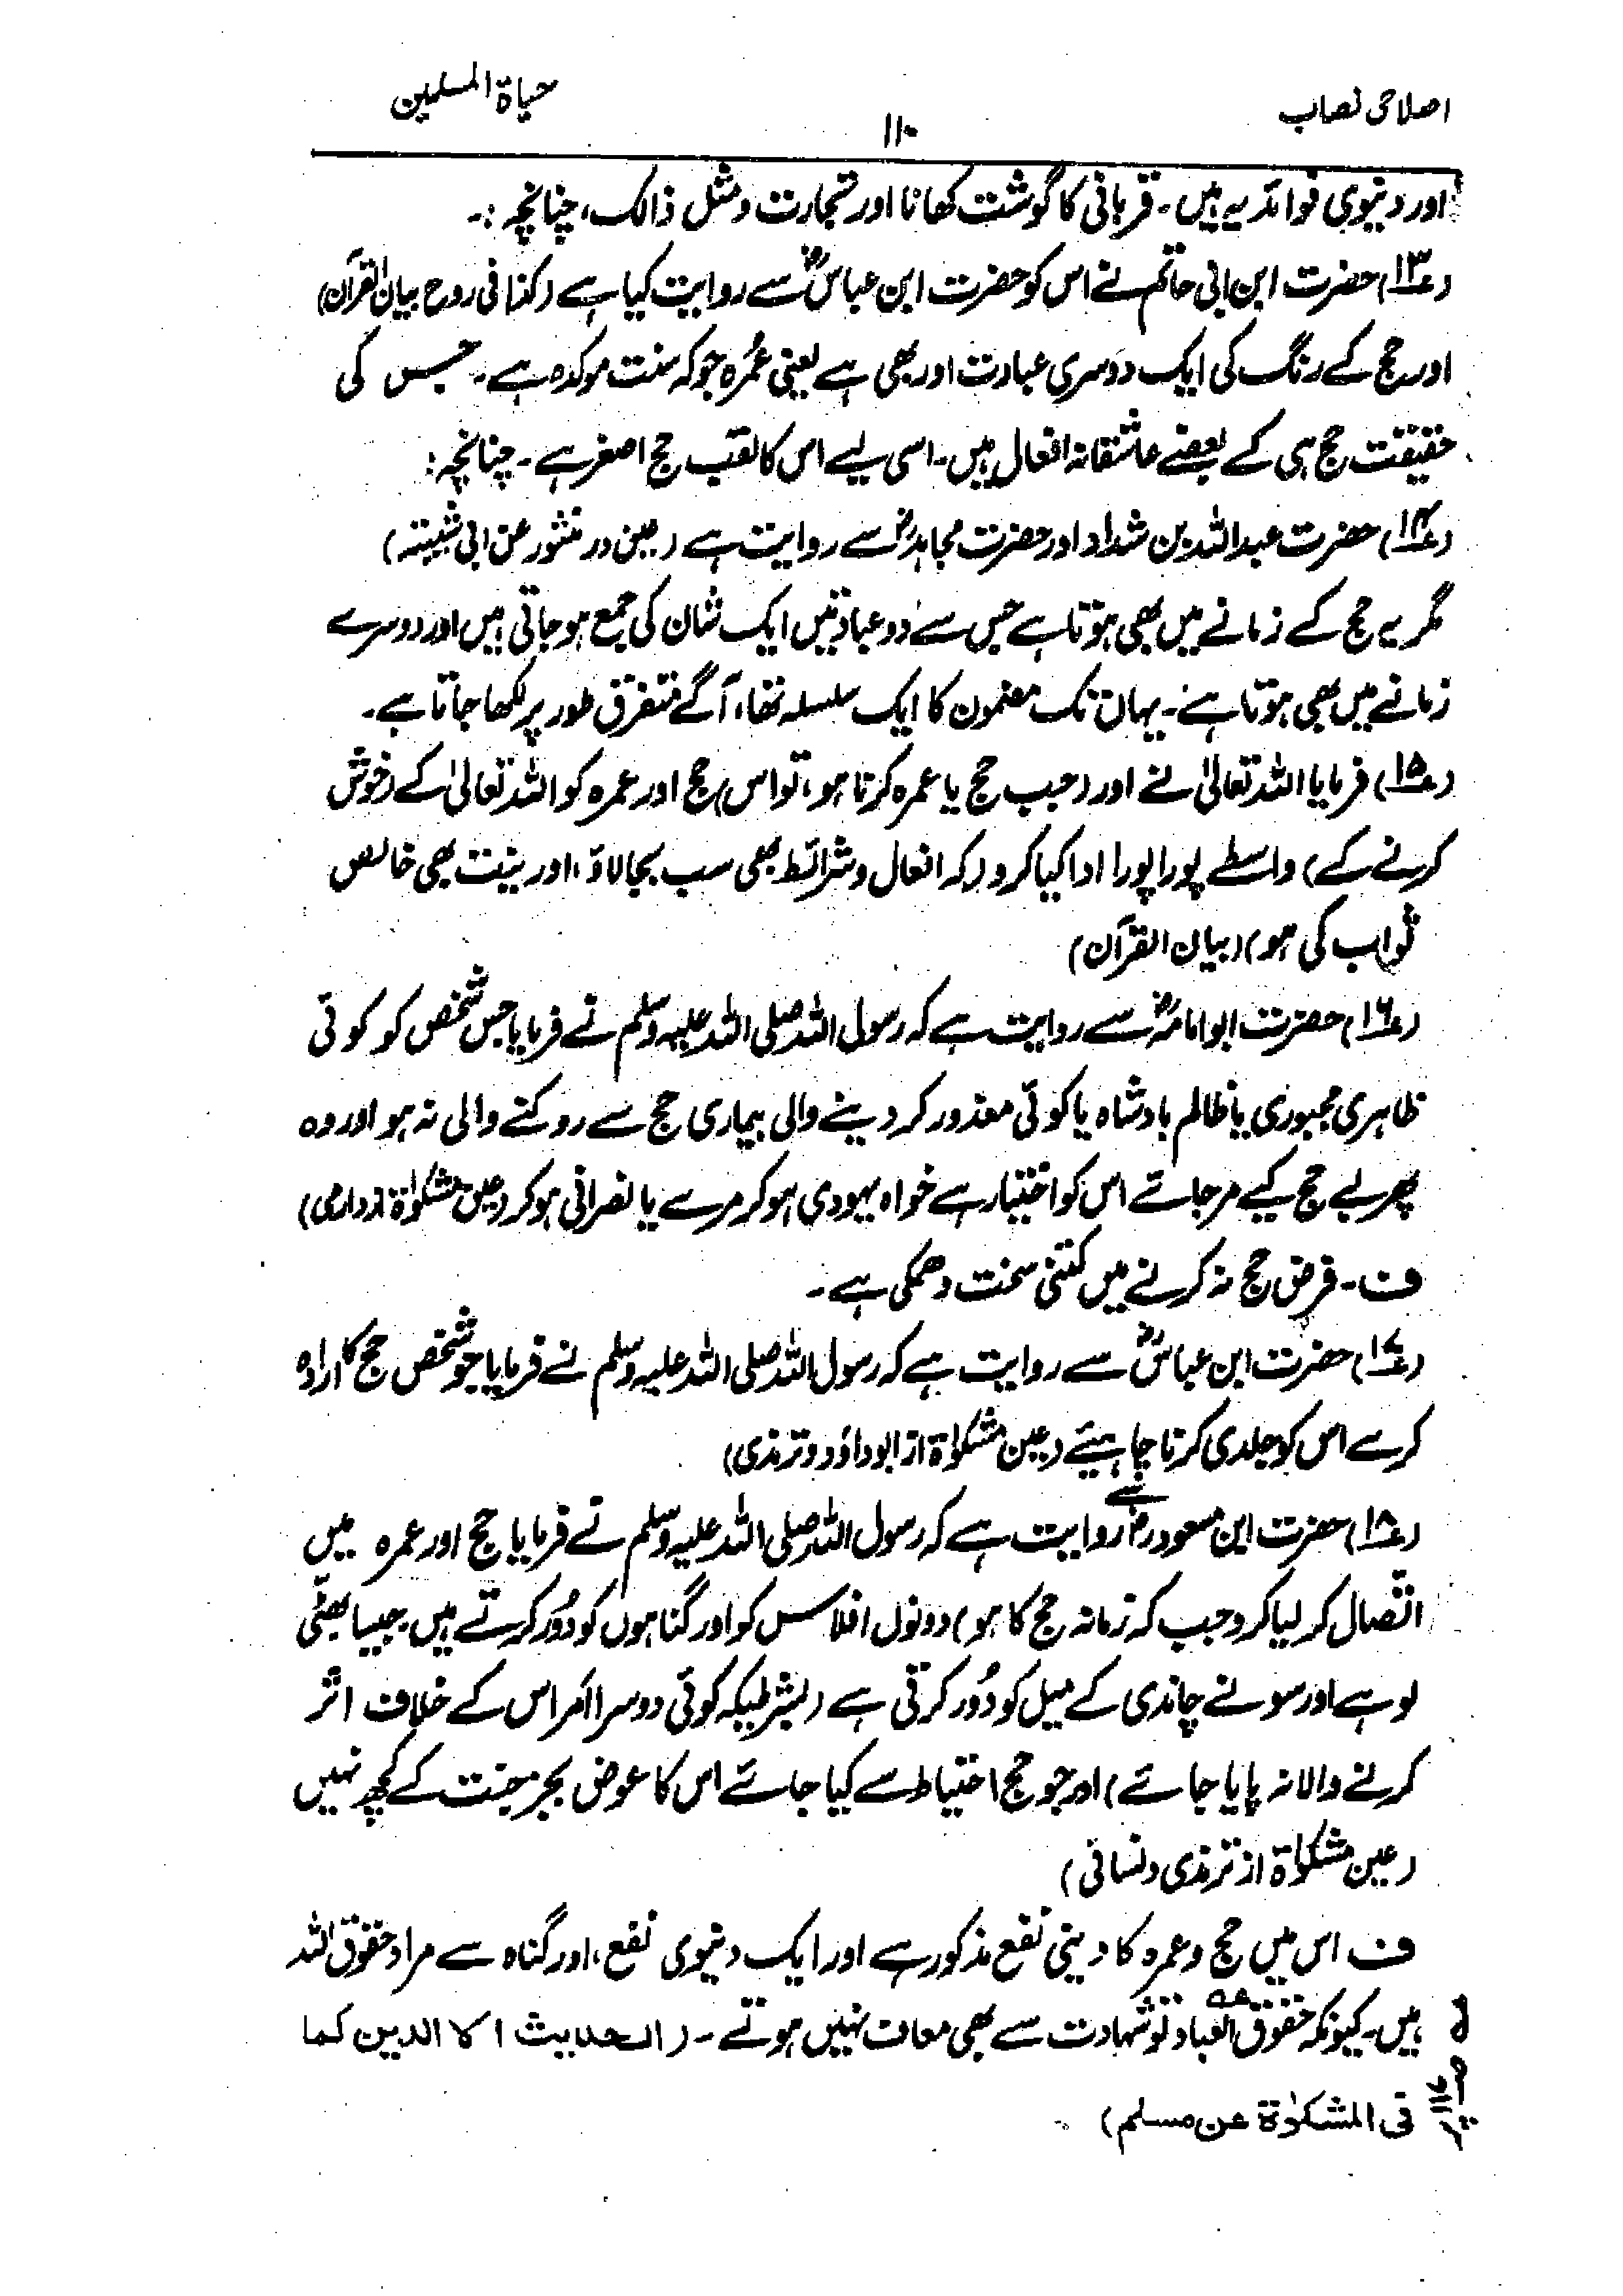 اصلاحی نصاب
۱۱۰
حیاۃ المسلمین
اور دنیوی فوائد یہ ہیں۔ قربانی کا گوشت کھانا اور تجارت ومثل ذالک، چنانچہ :۔
(۱۳؎) حضرت ابن ابی حاتم نے اس کو حضرت ابن عباسؓ سے روایت کیا ہے (کذا فی روح بیان القرآن)
اور حج کے رنگ کی ایک دوسری عبادت اور بھی ہے یعنی عُمرہ جو کہ سنت موکدہ ہے۔ جس کی
حقیقت حج ہی کے بعضے عاشقانہ افعال ہیں۔ اسی لیے اس کا لقب حج اصغر ہے۔ چنانچہ :
(۱۴؎) حضرت عبد اللہ بن شداد اور حضرت مجاہدؒ سے روایت ہے (عین در منثور عن ابی شیبتہ)
مگر یہ حج کے زمانے میں بھی ہوتا ہے جس سے دو عبادتیں ایک شان کی جمع ہو جاتی ہیں اور دوسرے
زمانے میں بھی ہوتا ہے۔ یہاں تک مضمون کا ایک سلسلہ تھا، آگے متفرق طور پر لکھا جاتا ہے۔
(۱۵؎) فرمایا اللہ تعالیٰ نے اور (جب حج یا عمرہ کرنا ہو، تو اس) حج اور عمرہ کو اللہ تعالیٰ کے (خوش
کرنے کے) واسطے پورا پورا ادا کیا کرو (کہ افعال و شرائط بھی سب بجا لاؤ، اور نیت بھی خالص
ثواب کی ہو) (بیان القرآن)
(۱۶؎) حضرت ابو امامہؓ سے روایت ہے کہ رسول اللہ صلی اللہ علیہ وسلم نے فرمایا جس شخص کو کوئی
ظاہری مجبوری یا ظالم بادشاہ یا کوئی معذور کر دینے والی بیماری حج سے روکنے والی نہ ہو اور وہ
پھر بے حج کیے مر جائے اس کو اختیار ہے خواہ یہودی ہو کر مرے یا نصرانی ہو کر (عین مشکوٰۃ از دارمی)
ف۔ فرض حج نہ کرنے میں کتنی سخت دھمکی ہے۔
(۱۷؎) حضرت ابن عباسؓ سے روایت ہے کہ رسول اللہ صلی اللہ علیہ وسلم نے فرمایا جو شخص حج کا ارادہ
کرے اس کو جلدی کرنا چاہیئے (عین مشکوٰۃ از ابوداؤد و ترمذی)
(۱۸؎) حضرت ابن مسعودؓ سے روایت ہے کہ رسول اللہ صلی اللہ علیہ وسلم نے فرمایا حج اور عمرہ میں
اتّصال کر لیا کرو جب کہ زمانہ حج کا ہو) دونوں افلاس کو اور گناہوں کو دُور کرتے ہیں جیسا بھٹی
لوہے اور سونے چاندی کے میل کو دُور کرتی ہے (بشرطیکہ کوئی دوسرا امر اس کے خلاف اثر
کرنے والا نہ پایا جائے) اور جو حج احتیاط سے کیا جائے اس کا عوض بجز جنت کے کچھ نہیں
(عین مشکوٰۃ از ترمذی و نسائی)
ف اس میں حج و عمرہ کا دینی نفع مذکور ہے اور ایک دنیوی نفع، اور گناہ سے مراد حقوق اللہ
ہیں۔ کیونکہ حقوق العباد تو شہادت سے بھی معاف نہیں ہوتے۔ (الحدیث الا الدین کما
فی المشکوٰۃ عن مسلم)